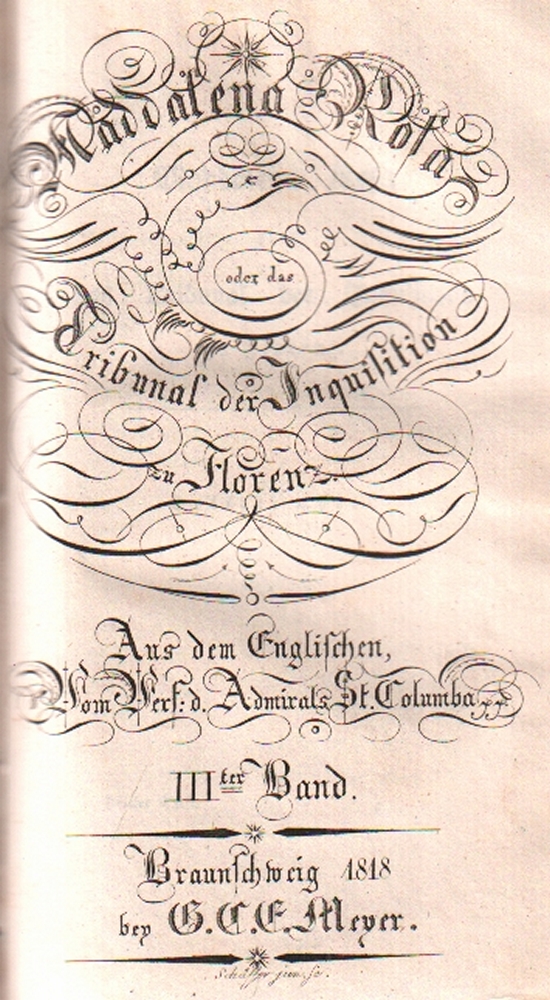 Maddalena Rosa
oder das
Tribunal der Inquiſition
zu Florenz.
Aus dem Engliſchen,
Vom Verf: d. Admirals St. Columba pp
IIIter Band.
Braunſchweig 1818
bey G. C. E. Meyer.
Schäffer jun. sc.